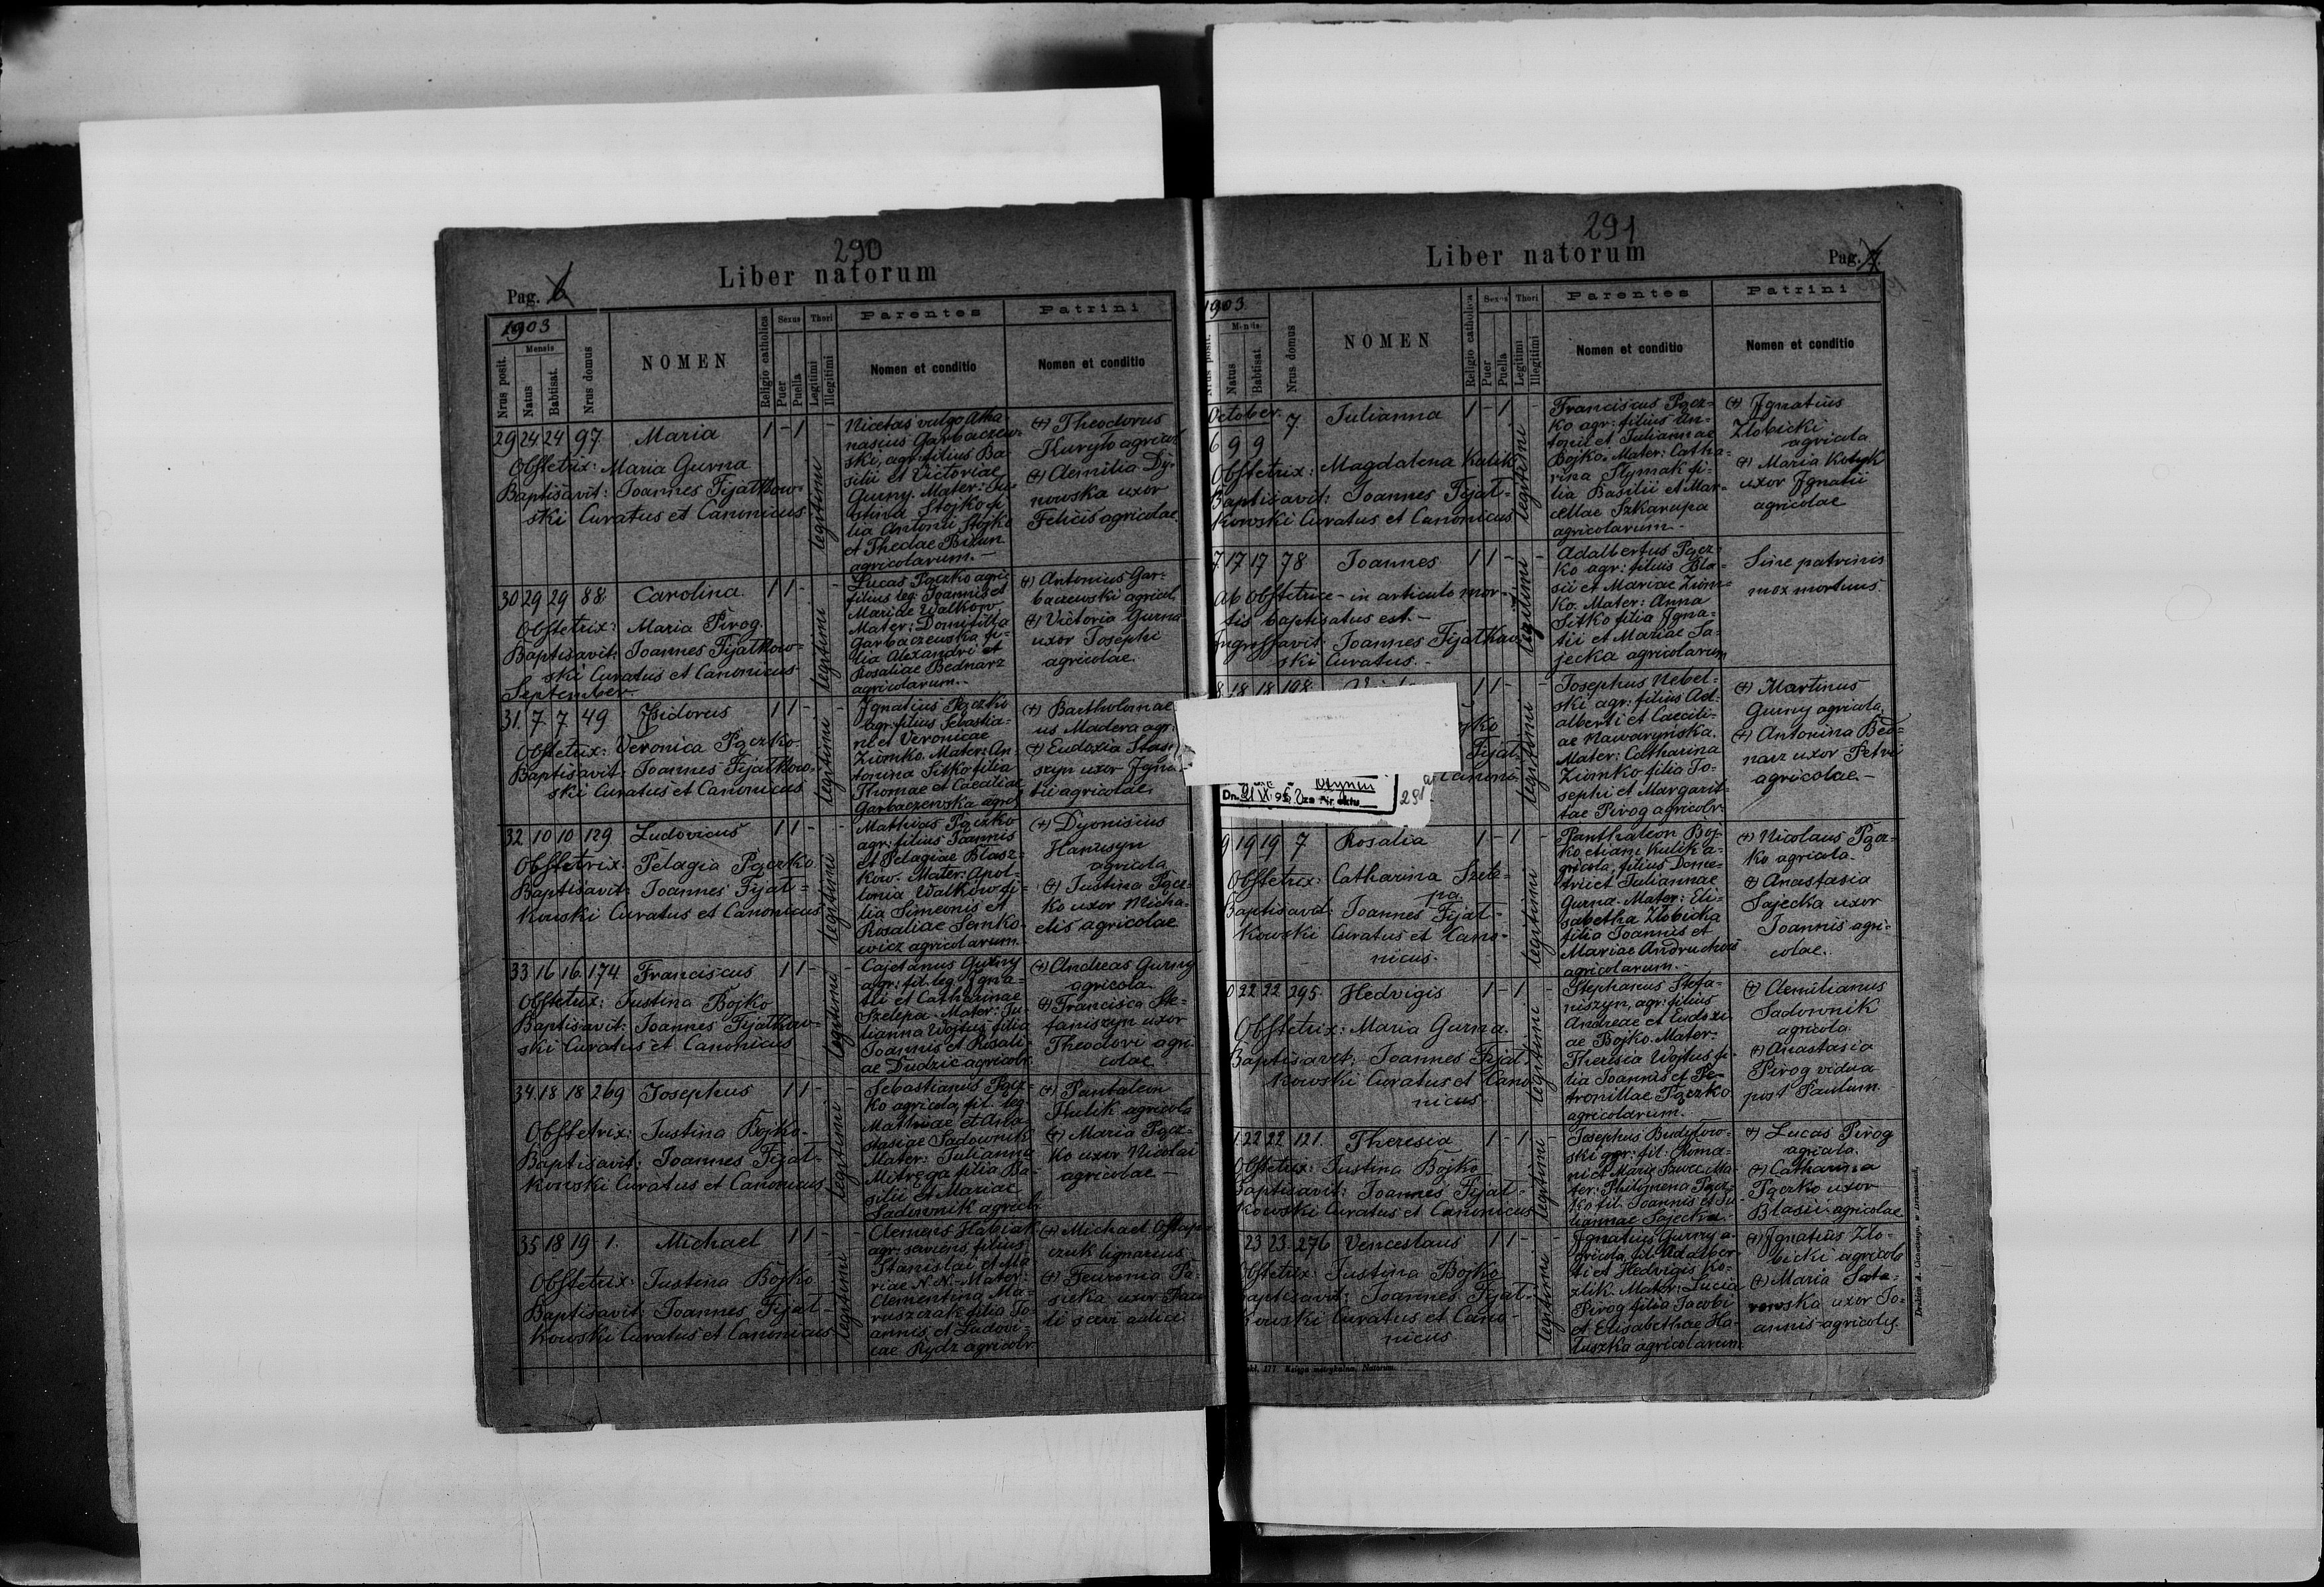 290
Liber natorum
Pag. 6
1903
Nrus posit.
Mensis
Natus
Babtisat.
Nrus domus
NOMEN
Religio catholica
Sexus
Puer
Puella
Thori
Legitimi
Illegitimi
Parentes
Nomen et conditio
Patrini
Nomen et conditio
29 24 24 97 Maria 1 - 1 -
Obstetrix: Maria Gurna
Baptisavit: Joannes Fijałkow-
ski Curatus et Canonicus
legitimi
Nicetas vulgo Atha-
nasius Garbaczew-
ski, agr: filius Ba-
silii et Victoriae
Gurny. Mater: Ju-
stina Stojko fi-
lia Antonii Stojko
et Theclae Bizun
agricolarum. -
(+) Theodorus
Kuryło agricol.
(+) Aemilia Dy-
nowska uxor
Felicis agricolae.
30 29 29 88 Carolina 1 1 - -
Obstetrix: Maria Pirog.
Baptisavit: Joannes Fijałkow-
ski Curatus et Canonicus
legitimi
Lucas Pączko agric.
filius leg: Joannis et
Mariae Walkow,
Mater: Domitilla
Garbaczewska fi-
lia Alexandri et
Rosaliae Bednarz
agricolarum. -
(+) Antonius Gar-
baczewski agricol.
(+) Victoria Gurna
uxor Josephi
agricolae.
September
31. 7 7 49 Isidorus 1 1 - -
Obstetrix: Veronica Pączko
Baptisavit: Joannes Fijałkow-
ski Curatus et Canonicus
legitimi
Ignatius Pączko
agr: filius Sebastia-
ni et Veronicae
Ziomko. Mater: An-
tonina Sitko filia
Thomae et Caeciliae
Garbaczewska agrol.
(+) Bartholomae-
us Madera agr:
(+) Eudoxia Stasi
szyn uxor Igna-
tii agricolae.
32 10 10 129 Ludovicus 1 1 - -
Obstetrix: Pelagia Pączko
Baptisavit: Joannes Fijał-
kowski Curatus et Canonicus
legitimi
Mathias Pączko
agr: filius Joannis
et Pelagiae Błasz-
kow. Mater: Apol-
lonia Walkow fi-
lia Simeonis et
Rosaliae Senko-
wicz agricolarum.
(+) Dyonisius
Hanusyn
agricola
(+) Justina Pącz-
ko uxor Micha-
elis agricolae
33 16 16 174 Franciscus 1 1 - -
Obstetrix: Justina Bojko
Baptisavit: Joannes Fijałkow-
ski Curatus et Canonicus
legitimi
Cajetanus Gurny
agr: fil. leg. Igna-
tii et Catharinae
Szelepa. Mater: Ju-
lianna Wojtus filia
Joannis et Rosali-
ae Dudzic agricolr.
(+) Andreas Gurny
agricola.
(+) Francisca Ste-
faniszyn uxor
Theodori agri-
colae
34. 18 18 269 Josephus 1 1 - -
Obstetrix: Justina Bojko -
Baptisavit: Joannes Fijał-
kowski Curatus et Canonicus
legitimi
Sebastianus Pącz-
ko agricola, fil. leg.
Mathiae et Ana-
stasiae Sadownik
Mater: Julianna
Mitręga filia Ba-
silii et Mariae
Sadownik agricolr.
(+) Pantaleon
Kulik agricola
(+) Maria Pącz-
ko uxor Nicolai
agricolae -
35 18 19 1. Michael 1 1 - -
Obstetrix: Justina Bojko
Baptisavit: Joannes Fijał-
kowski Curatus et Canonicus
legitimi
Clemens Habiak
agr: serviens filius
Stanislai et Ma-
riae N.N. - Mater:
Clementina Ma-
ruszczak filia Jo-
annis et Ludovi-
cae Rydz agricolr.
(+) Michael Ostap-
czuk lignarius
(+) Feuronia Pa-
siuka uxor
li servi aulici
291
Liber natorum
Pag. 7.
1903
Nrus posit.
Mensis
Natus
Babtisat.
Nrus domus
NOMEN
Religio catholica
Sexus
Puer
Puella
Thori
Legitimi
Illegitimi
Parentes
Nomen et conditio
Patrini
Nomen et conditio
October.
6 9 9 7 Julianna 1 - 1 -
Obstetrix: Magdalena Kulik
Baptisavit: Joannes Fijał-
kowski Curatus et Canonicus
legitimi
Franciscus Pącz-
ko agr: filius An-
tonii et Juliannae
Bojko. Mater: Catha-
rina Slymak fi-
lia Basilii et Mar-
cellae Szkarupa
agricolarum. -
(+) Ignatius
Złobicki
agricola
(+) Maria Kotyk
uxor Ignatii
agricolae
7 17 17 78 Joannes 1 1 - -
ab obstetrice - in articulo mor-
tis baptisatus est. -
Ingrossavit: Joannes Fijałkow-
ski Curatus. -
legitimi
Adalbertus Pącz-
ko agr: filius Bła-
sii et Mariae Ziom-
ko. Mater: Anna
Sitko filia Igna-
tii et Mariae Sa-
jecka agricolarum
Sine patrinis
mox mortuus.
8 18 18 198 1 1 - -
Fijał-
Canoni-
legitimi
Josephus Nebel-
ski agr: filius Ad-
alberti et Caecili-
ae Nawaryńska.
Mater: Catharina
Ziomko filia Jo-
sephi et Margari-
tae Pirog agricolr.
(+) Martinus
Gurny agricola.
(+) Antonina Bed-
narz uxor Petri
agricolae. -
Dn. za Nr. aktu
291
9 19 19 7 Rosalia 1 - 1 -
Obstetrix: Catharina Szele-
pa
Baptisavit: Joannes Fijał-
kowski Curatus et Cano-
nicus. -
legitimi
Panthaleon Boj-
ko, etiam Kulik a-
gricola, filius Deme-
trii et Juliannae
Gurna. Mater: Eli-
sabetha Złobicka
filia Joannis et
Mariae Andruchow
agricolarum. -
(+) Nicolaus Pącz-
ko agricola.
(+) Anastasia
Sajecka uxor
Joannis agri-
colae. -
0 22 22 295 Hedvigis 1 - 1 -
Obstetrix: Maria Gurna.
Baptisavit: Joannes Fijał-
kowski Curatus et Cano-
nicus.
legitimi
Stephanus Stefa-
niszyn, agr: filius
Andreae et Eudoxi-
ae Bojko. Mater:
Theresia Wojtus fi-
lia Joannis et Pe-
tronillae Pączko
agricolarum.
(+) Aemilianus
Sadownik
agricola.
(+) Anastasia
Pirog vidua
post Paulum.
1. 22 22 121. Theresia 1 - 1. -
Obstetrix: Justina Bojko
Baptisavit: Joannes Fijał-
kowski Curatus et Canonicus
legitimi
Josephus Budyłow-
ski agr: fil. Roma-
ni et Mariae Szwec Ma-
ter: Philomena Pącz-
ko fil. Joannis et Ju-
liannae Sajecka.
(+) Lucas Pirog
agricola.
(+) Catharina
Pączko uxor
Blasii agricolae
23 23 276 Venceslaus 1 1 - -
Obstetrix: Justina Bojko
Baptisavit: Joannes Fijał-
kowski Curatus et Cano-
nicus
legitimi
Ignatius Gurny a-
gricola, fil. Adalber-
ti et Hedvigis Ko-
zlik. Mater: Lucia
Pirog filia Jacobi
et Elisabethae Ha-
łuszka agricolarum
(+) Ignatius Zło-
bicki agricola
(+) Maria
uxor Jo-
annis agricolae.
177 Księga metrykalna, Natorum.